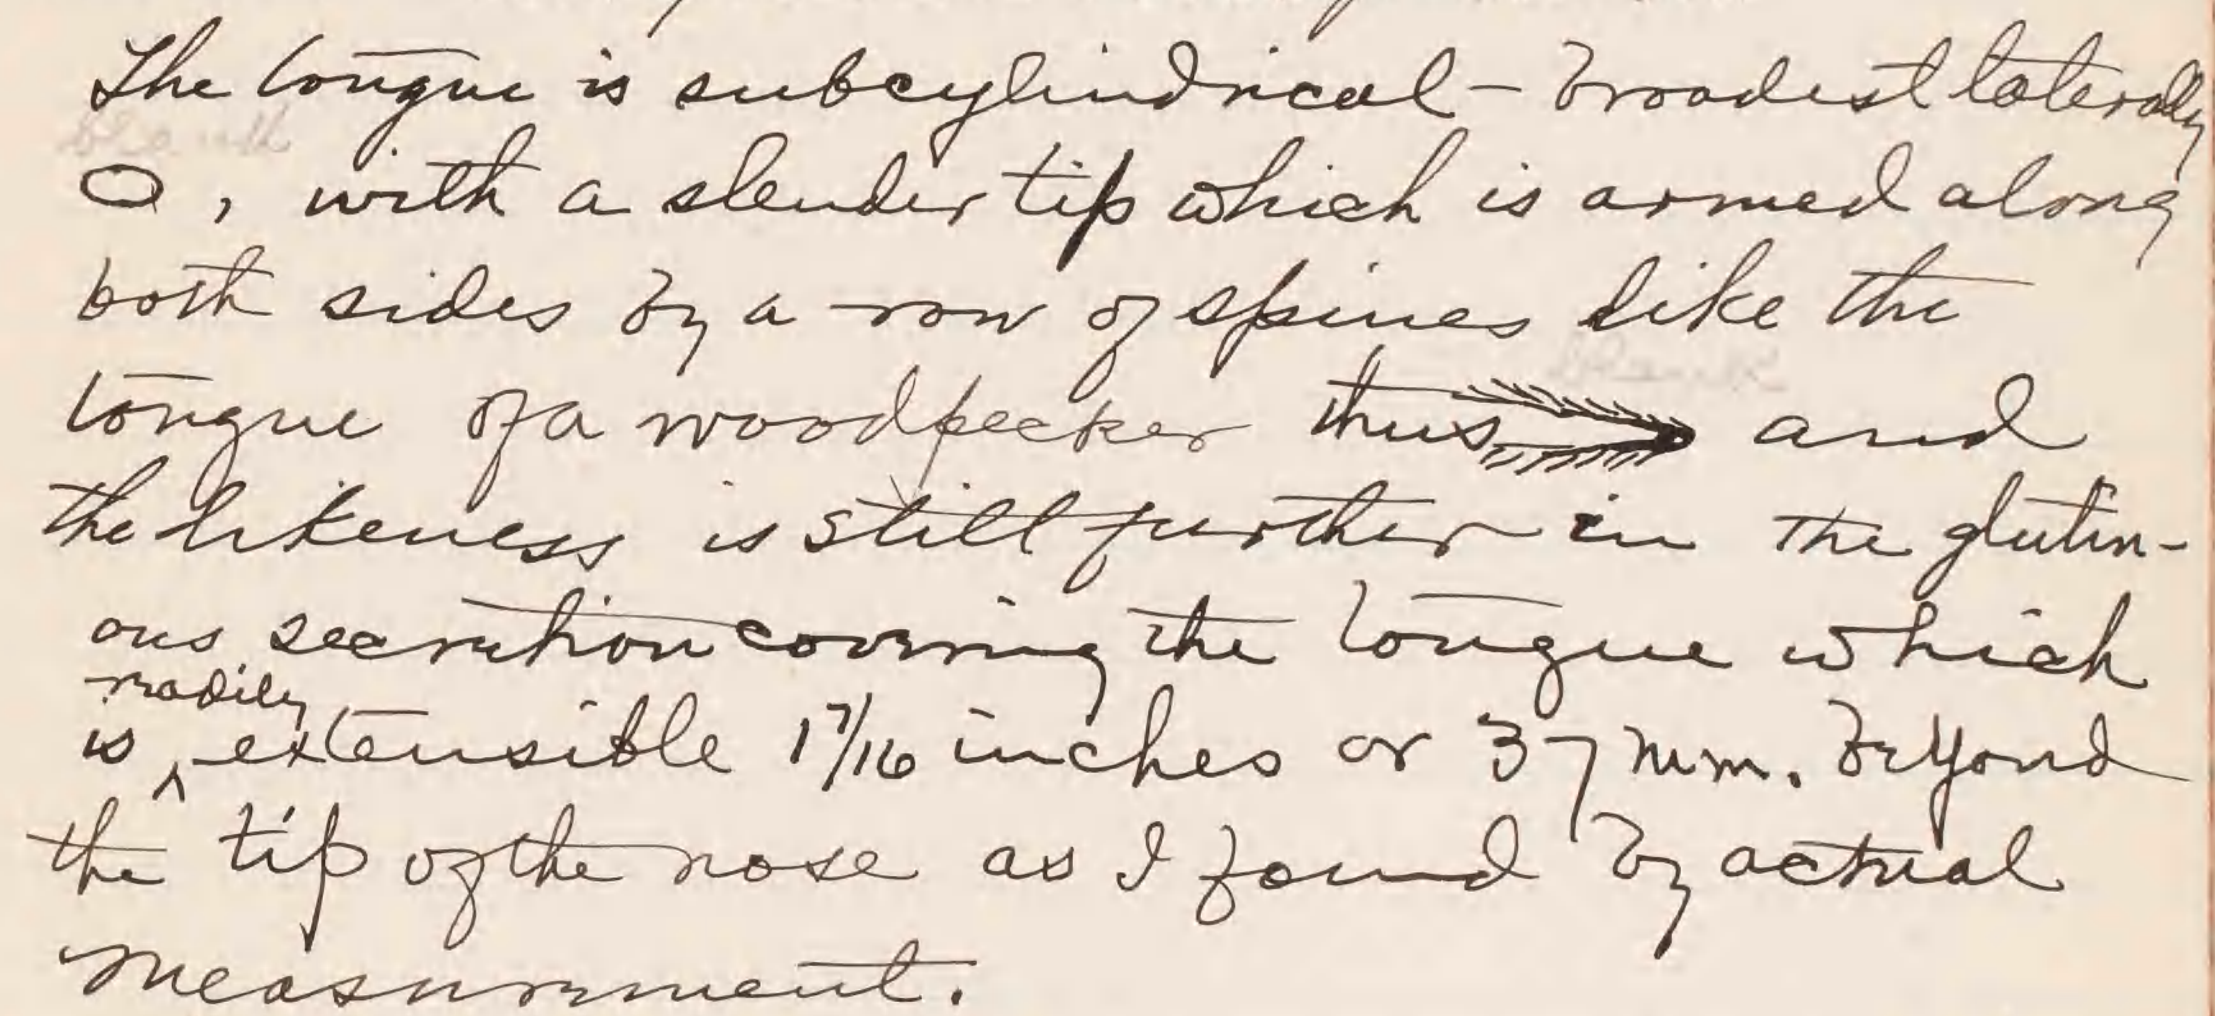 The tongue is subcylindrical – broadest laterally
, with a slender tip which is armed along
both sides by a row of spines like the
tongue of a woodpecker thus and
the likeness is still further in the glutin-
ous secretion covering the tongue which
readily
is ^ extensible 1 7/16 inches or 37 mm. beyond
the tip of the nose as I found by actual
measurement.